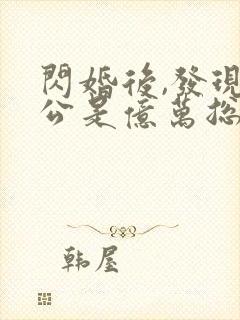 閃婚後,發現
公是億萬總
韩屋